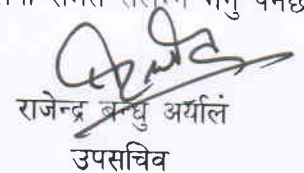 राजेन्द्र बन्धु अर्याल
उपसचिव